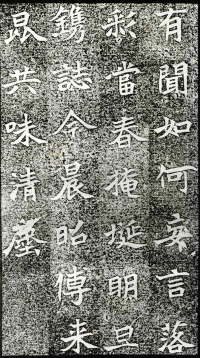 有聞如何妄言落
彩當春掩埏明旦
鐫誌今晨昭傳来
昆共味清塵